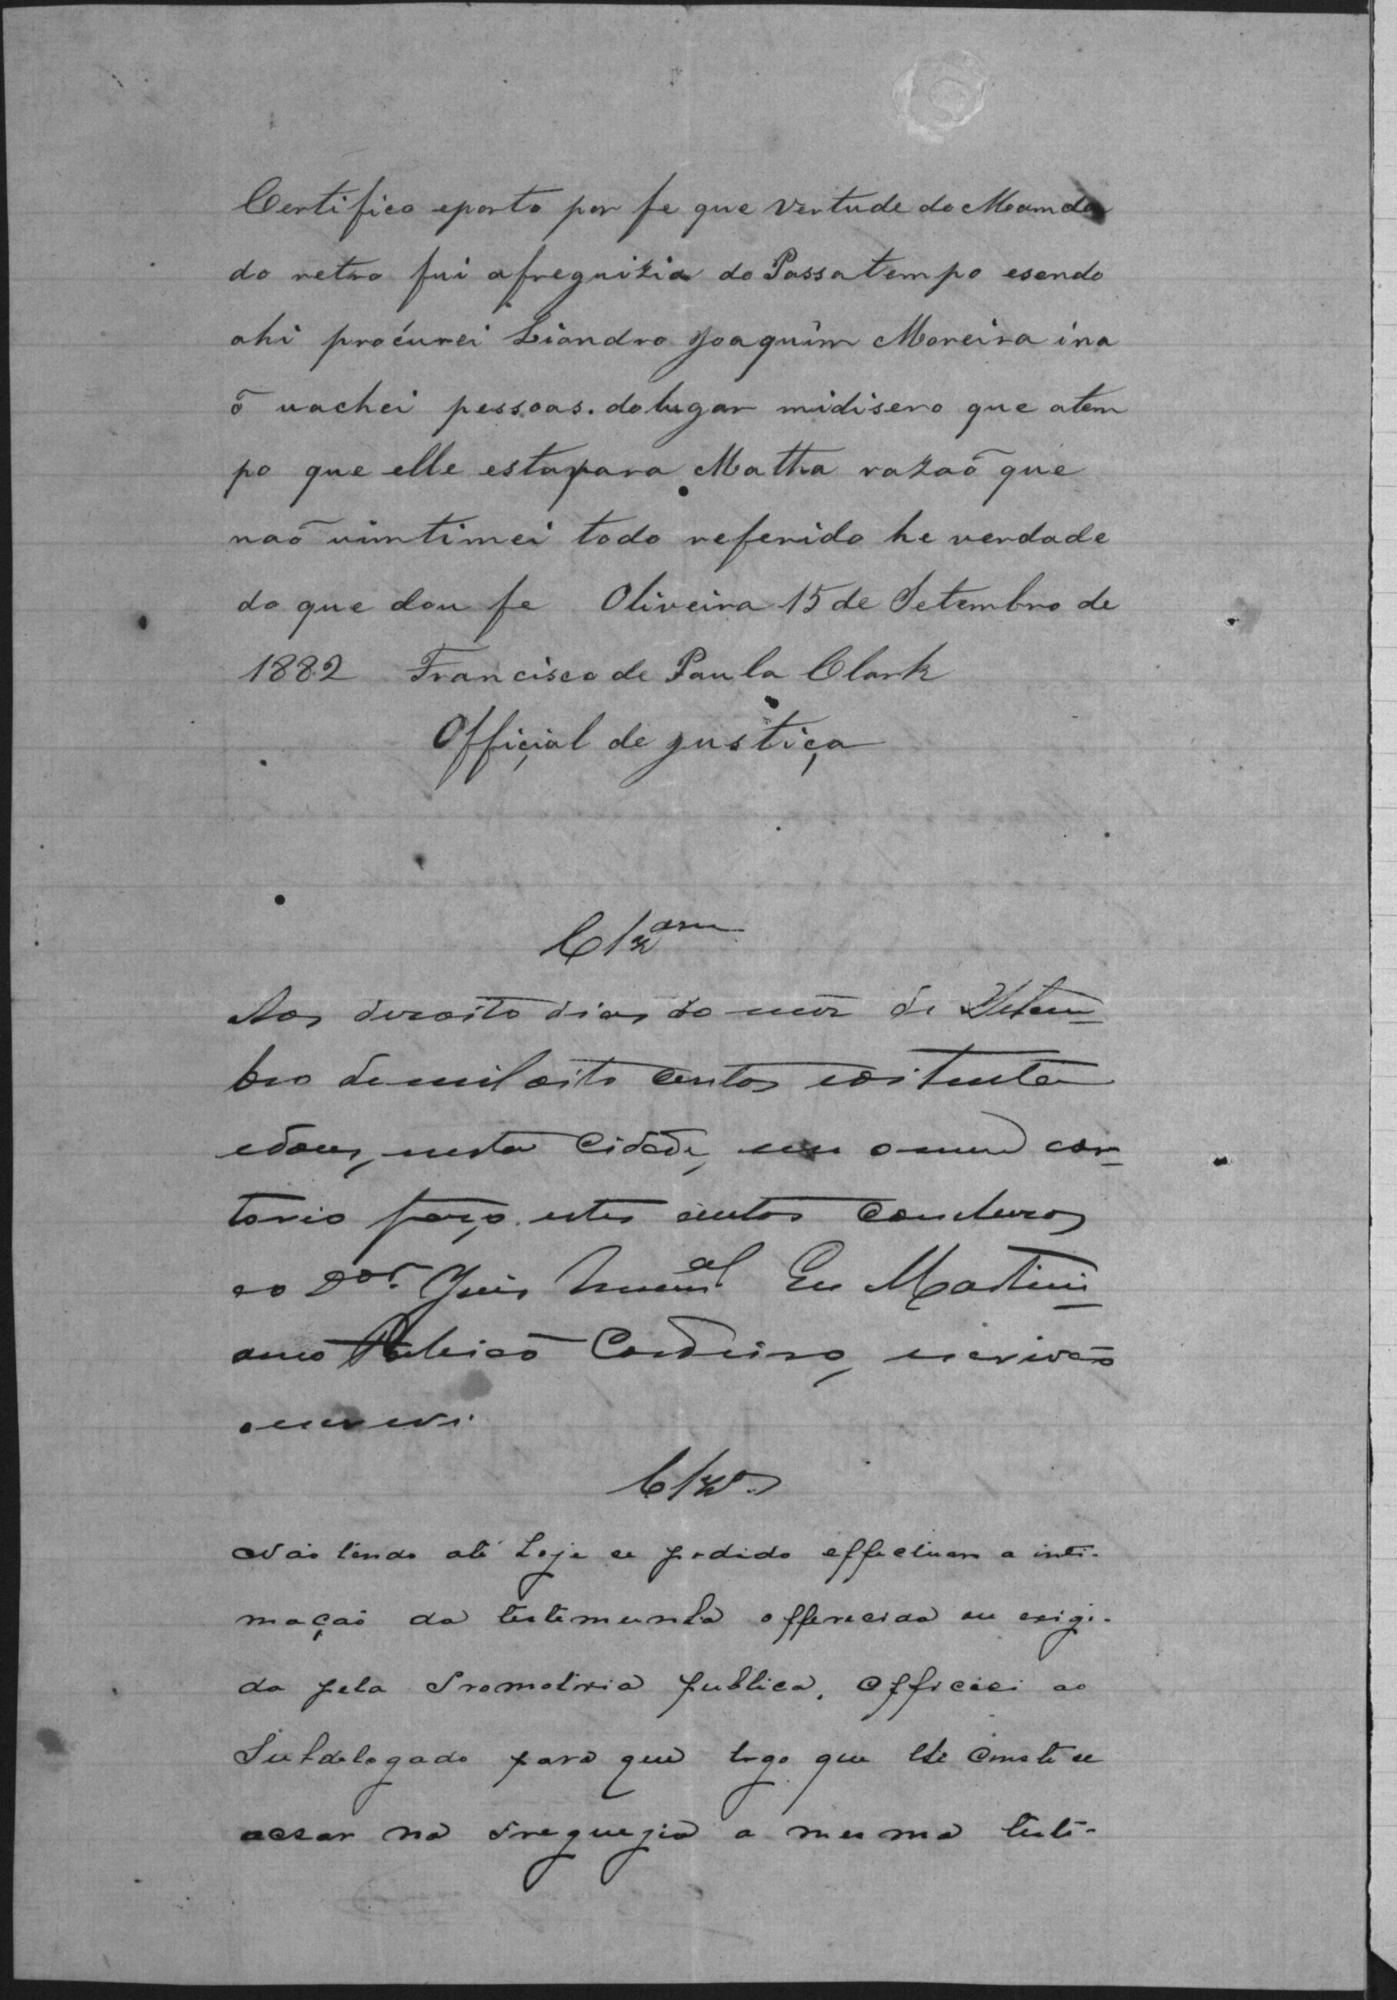 Certifico eporto por fe que vertude do Mamda
do retro fui afreguizia do Passatempo esendo
ahi procurei Liandro Joaquim Moreira ina
õ uachei pessoas. dolugar midisero que atem
po que elle estapara Matta razaõ que
naõ uimtimei todo referido he verdade
do que dou fe Oliveira 15 de Setembro de
1882 Francisco de Paula Clark
Offiçial de justiça
Clzam
Aos dezoito dias do mez de Setem-
bro demil oito centos eoitenta
edous, nesta Cidade, em omeu car-
torio faço estes autos conclusos
ao Dor. Juis Munal Eu Martini-
ano Cordeiro, escrivaõ
oescrevi.
Clzos
Não tendo até hoje se podido effectuar a inti-
maçaõ da testemunha offerecida ou exigi-
da pela Promotoria publica, officiei ao
Subdelegado para que logo que lhe conste se
achar na Freguezia a mesma teste-